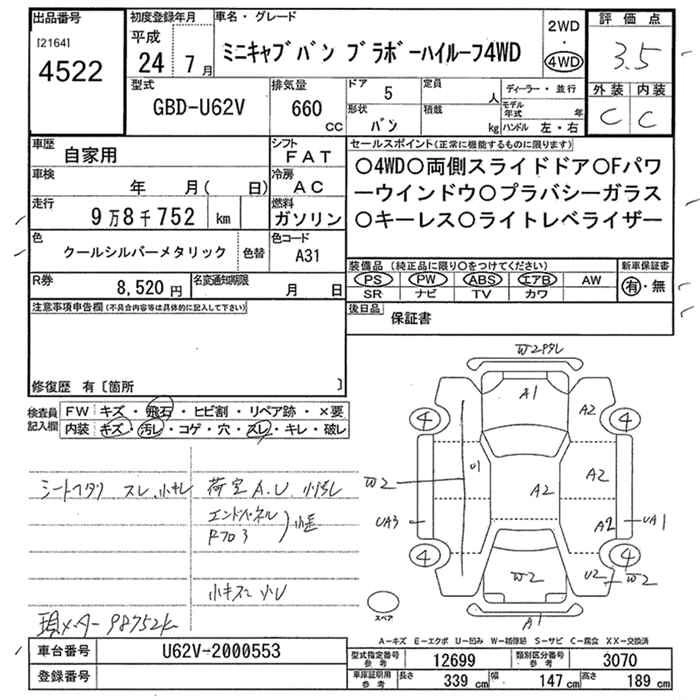 出品番号
[2164]
4522
初度登録年月
平成
24 7 月
車名・グレード
ミニキャブバン ブラボーハイルーフ4WD
2WD
・
4WD
評価点
3.5
外装 内装
C C
型式
GBD-U62V
排気量
660
CC
ドア 5
形状 バン
定員 人
積載 kg
ディーラー・並行
モデル年式 年
ハンドル 左・右
車歴 自家用
シフト FAT
車検 年 月( 日)
冷房 AC
走行 9万8千752 km
燃料 ガソリン
色 クールシルバーメタリック 色替
色コード A31
R券 8,520 円
名変通知期限 月 日
セールスポイント(正常に機能するものに限ります)
○4WD○両側スライドドア○Fパワ
ーウインドウ○プラバシーガラス
○キーレス○ライトレベライザー
装備品(純正品に限り○をつけてください)
PS PW ABS エアB AW
SR ナビ TV カワ
新車保証書
有・無
後日品 保証書
注意事項申告欄(不具合内容等は具体的に記入して下さい)
修復歴 有〔箇所 〕
検査員記入欄
FW キズ・飛石・ヒビ割・リペア跡・×要
内装 キズ・汚レ・コゲ・穴・スレ・キレ・破レ
荷室A.U
エンドパネル
小キズ
現メーター 98752k
W2
A1
A2
4
4
U1
A2
A2
W2
UA3
A2
UA1
4
4
W2
U2
W2
A1
スペア
A-キズ E-エクボ U-凹み W-補修跡 S-サビ C-腐食 XX-交換済
車台番号 U62V-2000553
登録番号
型式指定番号 参考 12699
類別区分番号 参考 3070
車庫証明用 参考
長さ 339 cm
幅 147 cm
高さ 189 cm